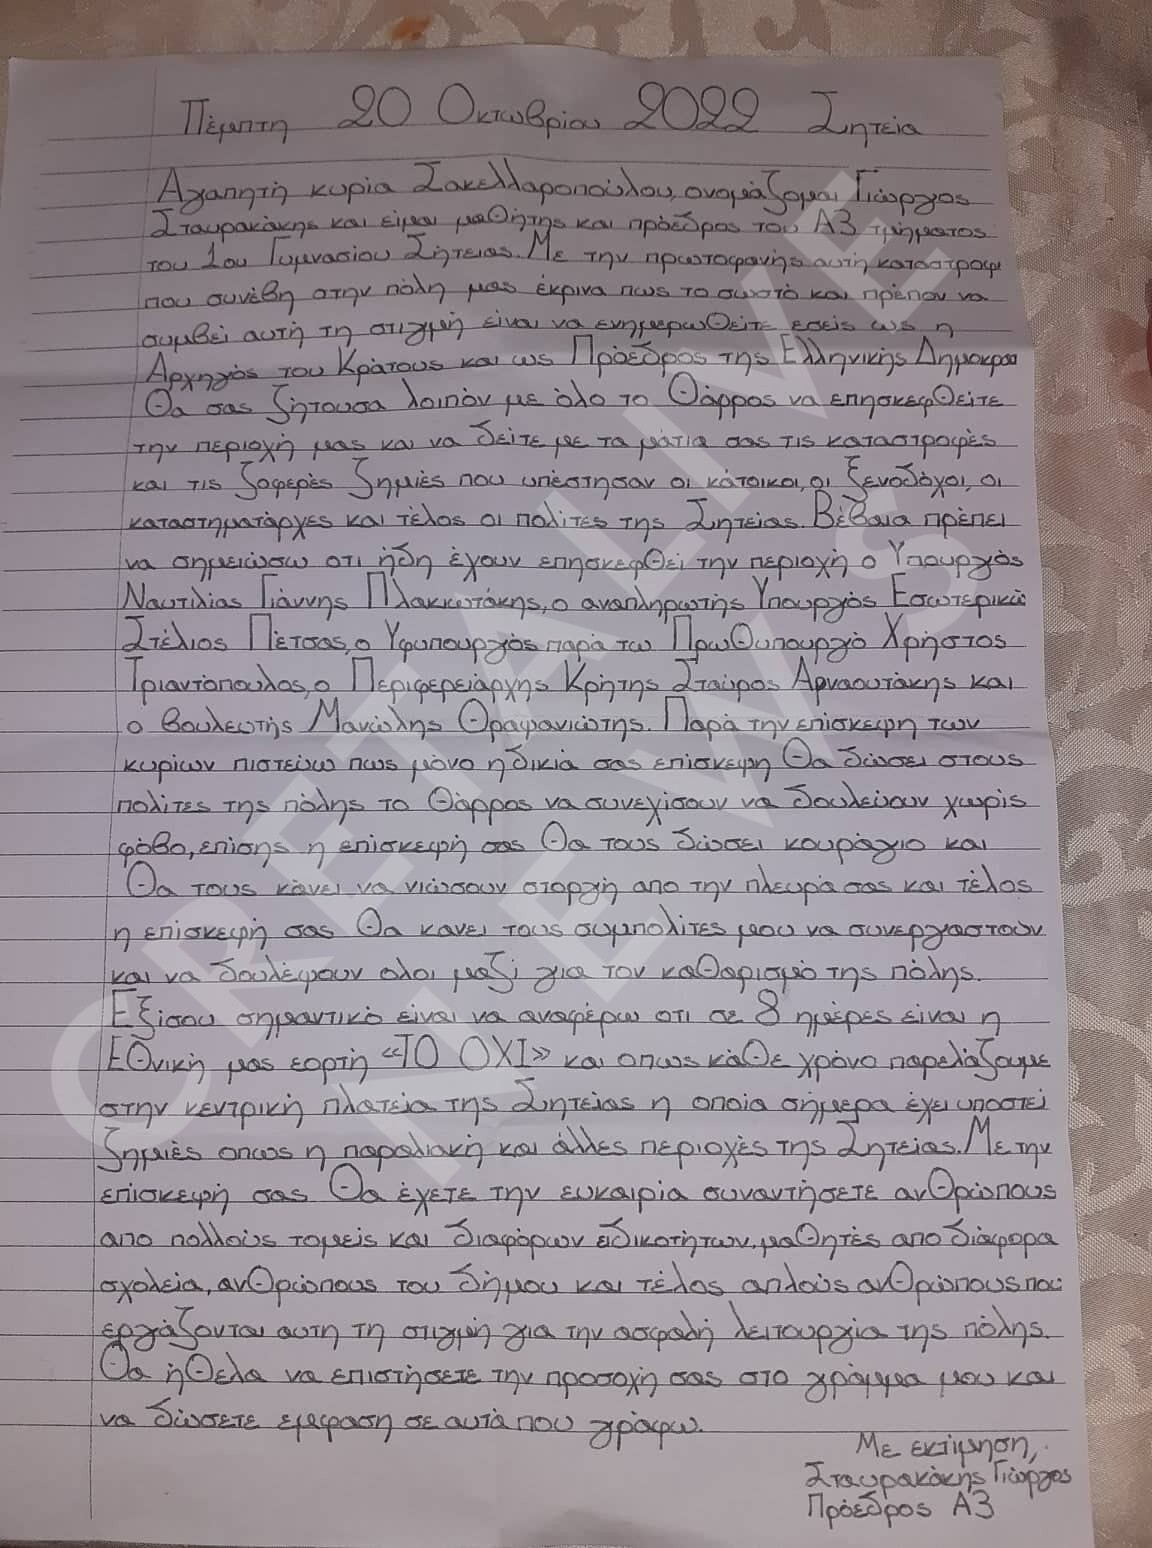 Πέμπτη 20 Οκτωβρίου 2022 Σητεία
Αγαπητή κυρία Σακελλαροπούλου, ονομάζομαι Γιώργος
Σταυρακάκης και είμαι μαθήτης και πρόεδρος του Α3 τμήματος
του 1ου Γυμνασίου Σητείας. Με την πρωτοφανής αυτή καταστροφή
που συνέβη στην πόλη μας έκρινα πως το σωστό και πρέπον να
συμβεί αυτή τη στιγμή είναι να ενημερωθείτε εσείς ως η
Αρχηγός του Κράτους και ως Πρόεδρος της Ελληνικής Δημοκρα
Θα σας ζήτουσα λοιπόν με όλο το Θάρρος να επησκεφθείτε
την περιοχή μας και να δείτε με τα μάτια σας τις καταστροφές
και τις ζοφερές ζημιές που υπέστησαν οι κάτοικοι, οι ξενοδόχοι, οι
καταστηματάρχες και τέλος οι πολίτες της Σητείας. Βέβαια πρέπει
να σημειώσω οτι ήδη έχουν επησκεφθεί την περιοχή ο Υπουργός
Ναυτιλίας Γιάννης Πλακιωτάκης, ο αναπληρωτής Υπουργός Εσωτερικώ
Στέλιος Πέτσας, ο Υφυπουργός παρά τω Πρωθυπουργό Χρήστος
Τριαντόπουλος, ο Περιφερειάρχης Κρήτης Σταύρος Αρναουτάκης και
ο βουλευτής Μανώλης Θραψανιώτης. Παρά την επίσκεψη των
κυρίων πιστεύω πως μόνο η δικιά σας επίσκεψη Θα δώσει στους
πολίτες της πόλης το Θάρρος να συνεχίσουν να δουλεύουν χωρίς
φόβο, επίσης η επίσκεψή σας Θα τους δώσει κουράγιο και
Θα τους κάνει να νιώσουν στοργή απο την πλευρά σας και τέλος
η επίσκεψή σας Θα κανει τους συμπολίτες μου να συνεργαστούν
και να δουλέψουν ολοι μαζί για τον καθαρισμό της πόλης.
Εξίσου σημαντικό είναι να αναφέρω οτι σε 8 ημέρες είναι η
Εθνική μας εορτή «ΤΟ ΟΧΙ» και οπως κάθε χρόνο παρελάζουμε
στην κεντρική πλατεία της Σητείας η οποία σήμερα έχει υποστεί
ζημιές οπως η παραλιακή και άλλες περιοχές της Σητείας. Με την
επίσκεψή σας Θα έχετε την ευκαιρία συναντήσετε ανθρώπους
απο πολλούς τομείς και διαφόρων ειδικοτήτων, μαθητές απο διάφορα
σχολεία, ανθρώπους του δήμου και τέλος απλούς ανθρώπους που
εργάζονται αυτη τη στιγμή για την ασφαλή λειτουργία της πόλης.
Θα ήθελα να επιστήσετε την προσοχή σας στο γράμμα μου και
να δώσετε έμφαση σε αυτά που γράφω.
Με εκτίμηση,
Σταυρακάκης Γιώργος
Πρόεδρος Α3
CRETALIVE
NEWS